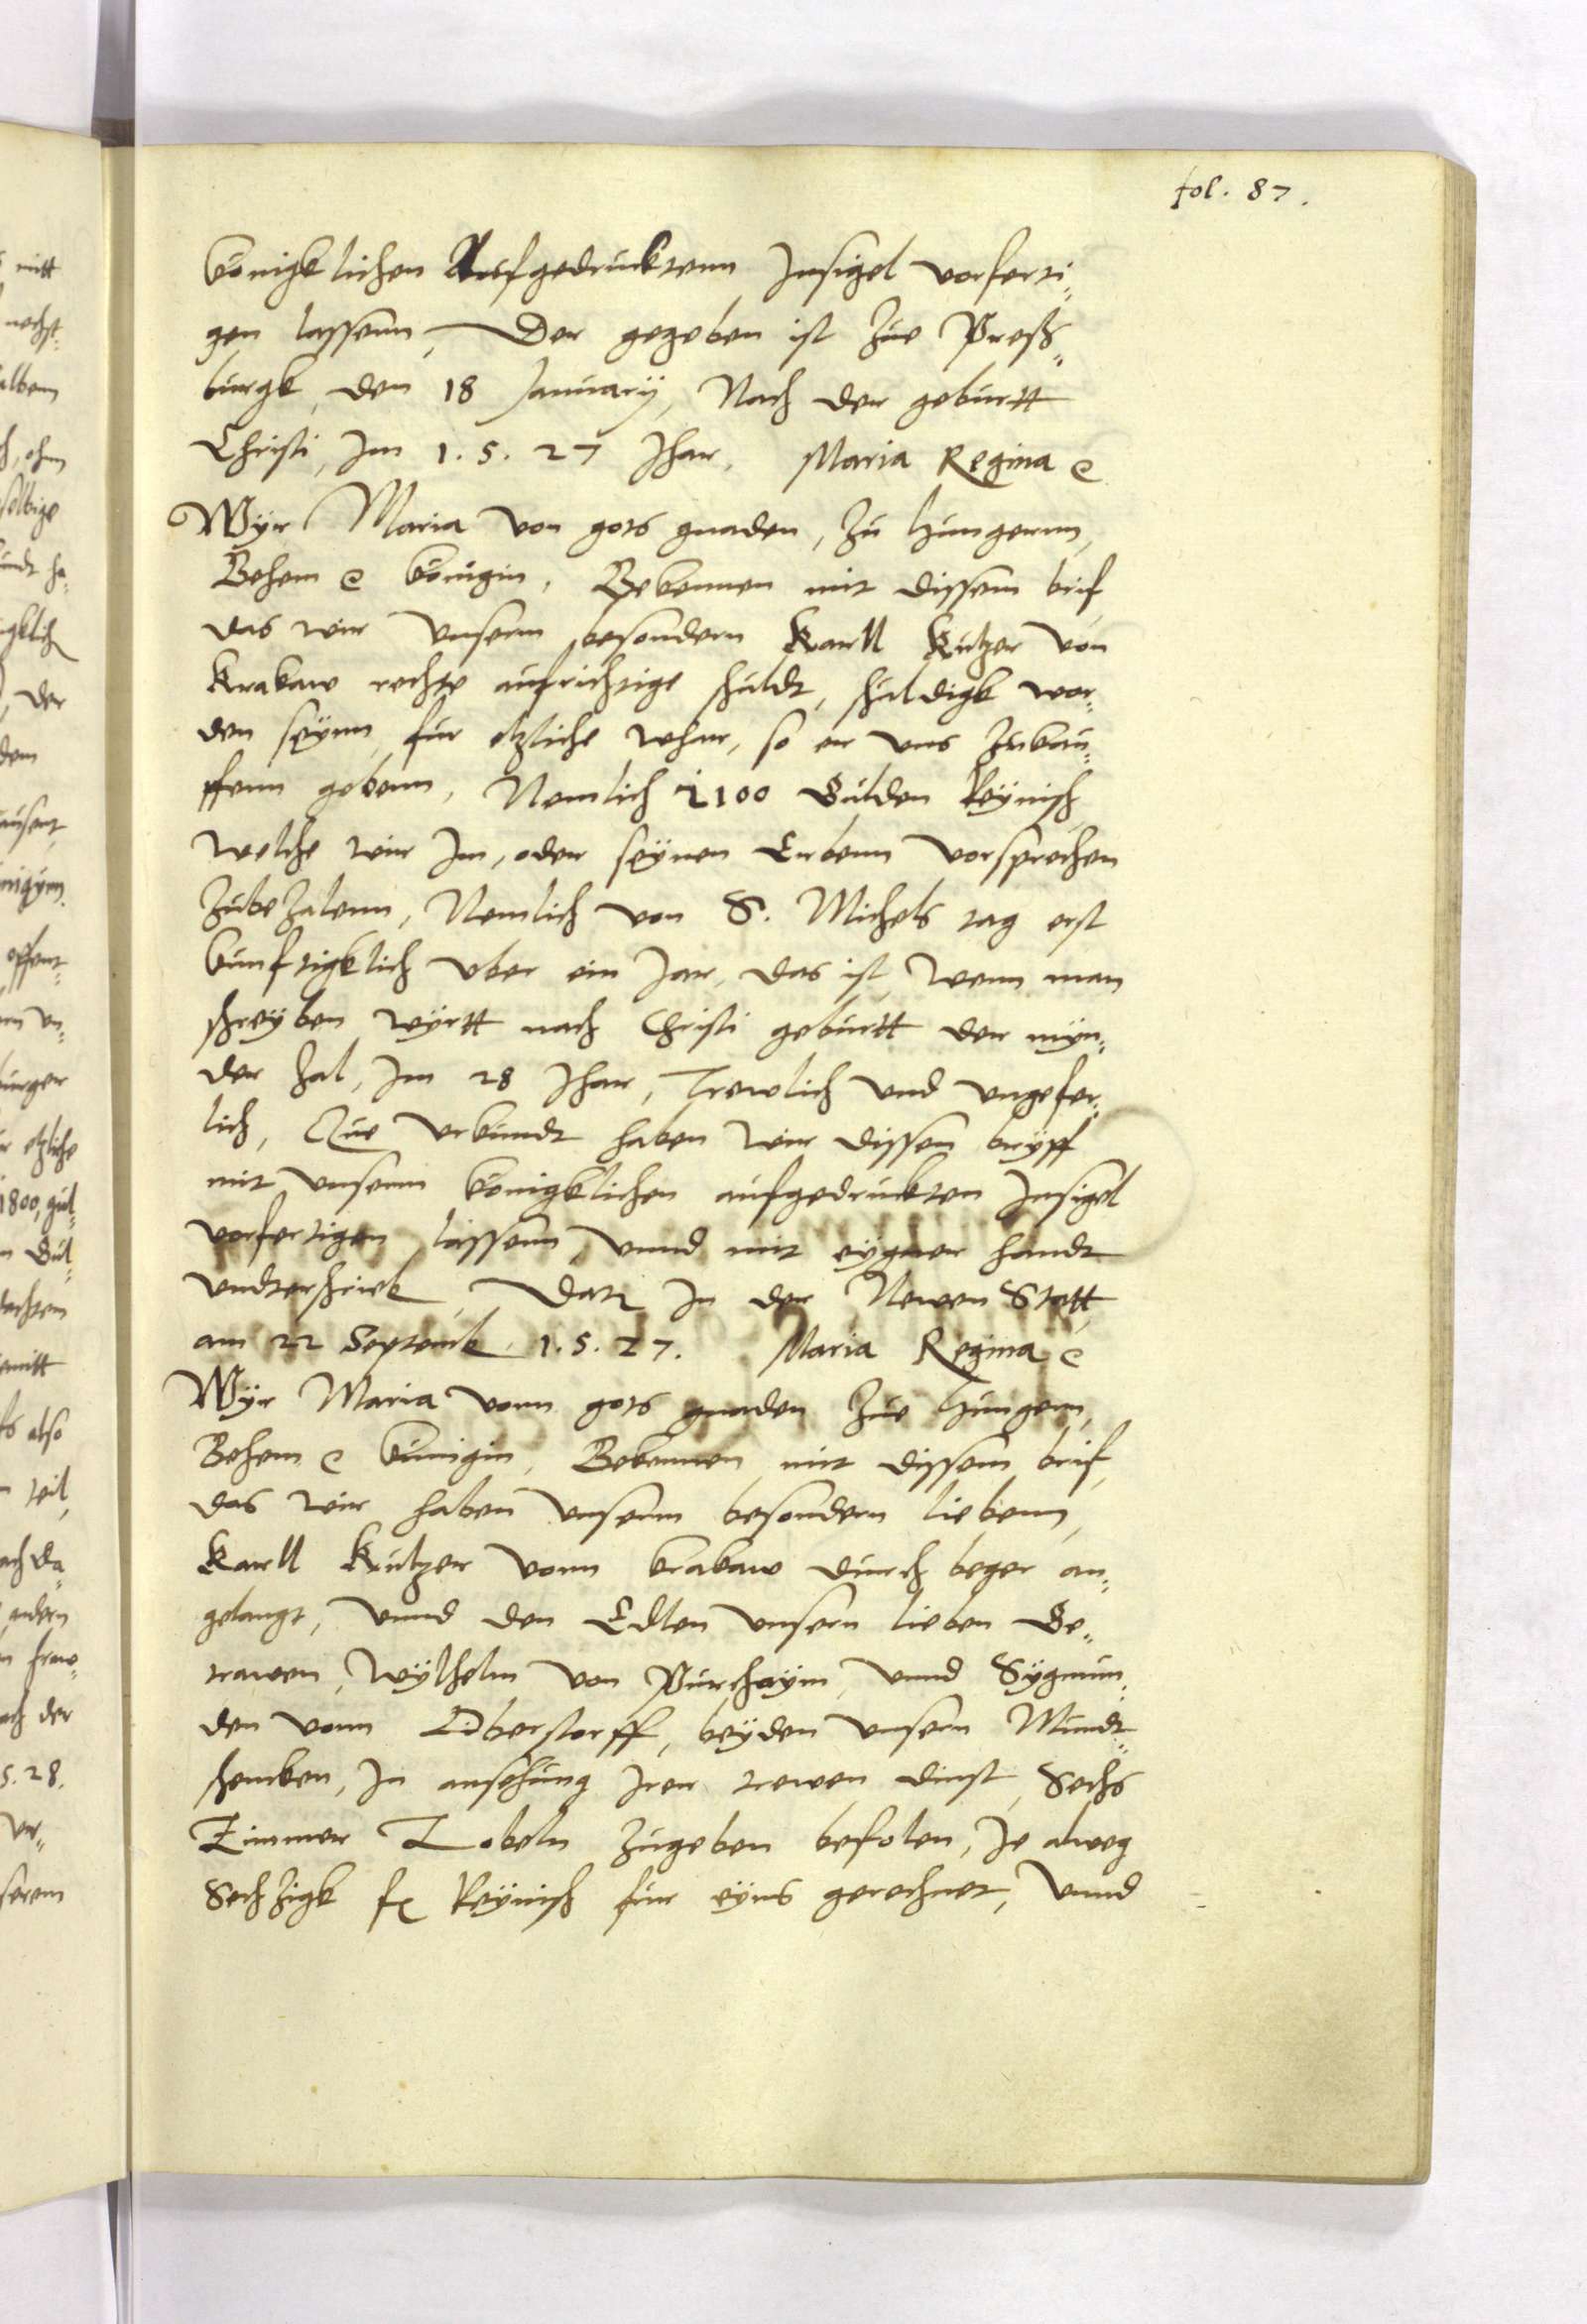 fol. 87.
königklichen Aufgedrucktenn Insigel vorferti„
gen lassenn, Der gegeben ist Zue Preß„
burgk, den 18 January, Nach der geburtt
Christi, Im 1. 5. 27 Jhar, Maria Regina
Wyr Maria von gots gnaden, Zu Hungernn,
Behem königin, Bekennen mit dissem brif
das wir vnserm besondern Karll Kutzer von
Krakaw rechte aufrichtige schuldt, schuldigk wor„
den seynn, für etzliche whar, so er vns Zukau„
ffenn gebenn, Nemlich 2100 Gulden Reynisch
welche wir Im, oder seynen Erbenn vorsprechen
Zubezalenn, Nemlich von S. Michels tag erst
kunftigklich vber ein Jar, das ist, wenn man
schreyben wyrtt nach Christi geburtt der myn„
der Zal, Im 28 Jhar, Trewlich vnd vngefer„
lich, Zue vrkundt haben wir dissen bryff
mit vnserm königklichen aufgedruckten Insigel
vorfertigen lassenn, vnnd mit eygner handt
vndterschrieb, Dat In der Newen Statt
am 22 Septemb 1. 5. 27. Maria Regina
Wyr Maria vonn gots gnaden Zue Hungern,
Behem künigin, Bekennen, mit dissem brif,
das wir haben vnserm besondern liebenn,
Karll Kutzer vonn krakaw durch beger an„
gelangt, vnnd den Edlen vnsern lieben Ge„
trawen, Wylhelm von Purchaym, vnnd Sygmun„
den vonn Oberstorff, beyden vnsern Mundt„
schencken, In ansehung Irer trewen dinst, Sechs
Zimmer Zobeln Zugeben befolen, Je alweg
Sechzigk fl Reynisch für eyns gerechnet, vnnd
mitt
nechst„
alben
ohn
selbige
der
dem
offent„
etzliche
1800, gul„
Gul„
also
teil,
andern
der
5. 28.
serem